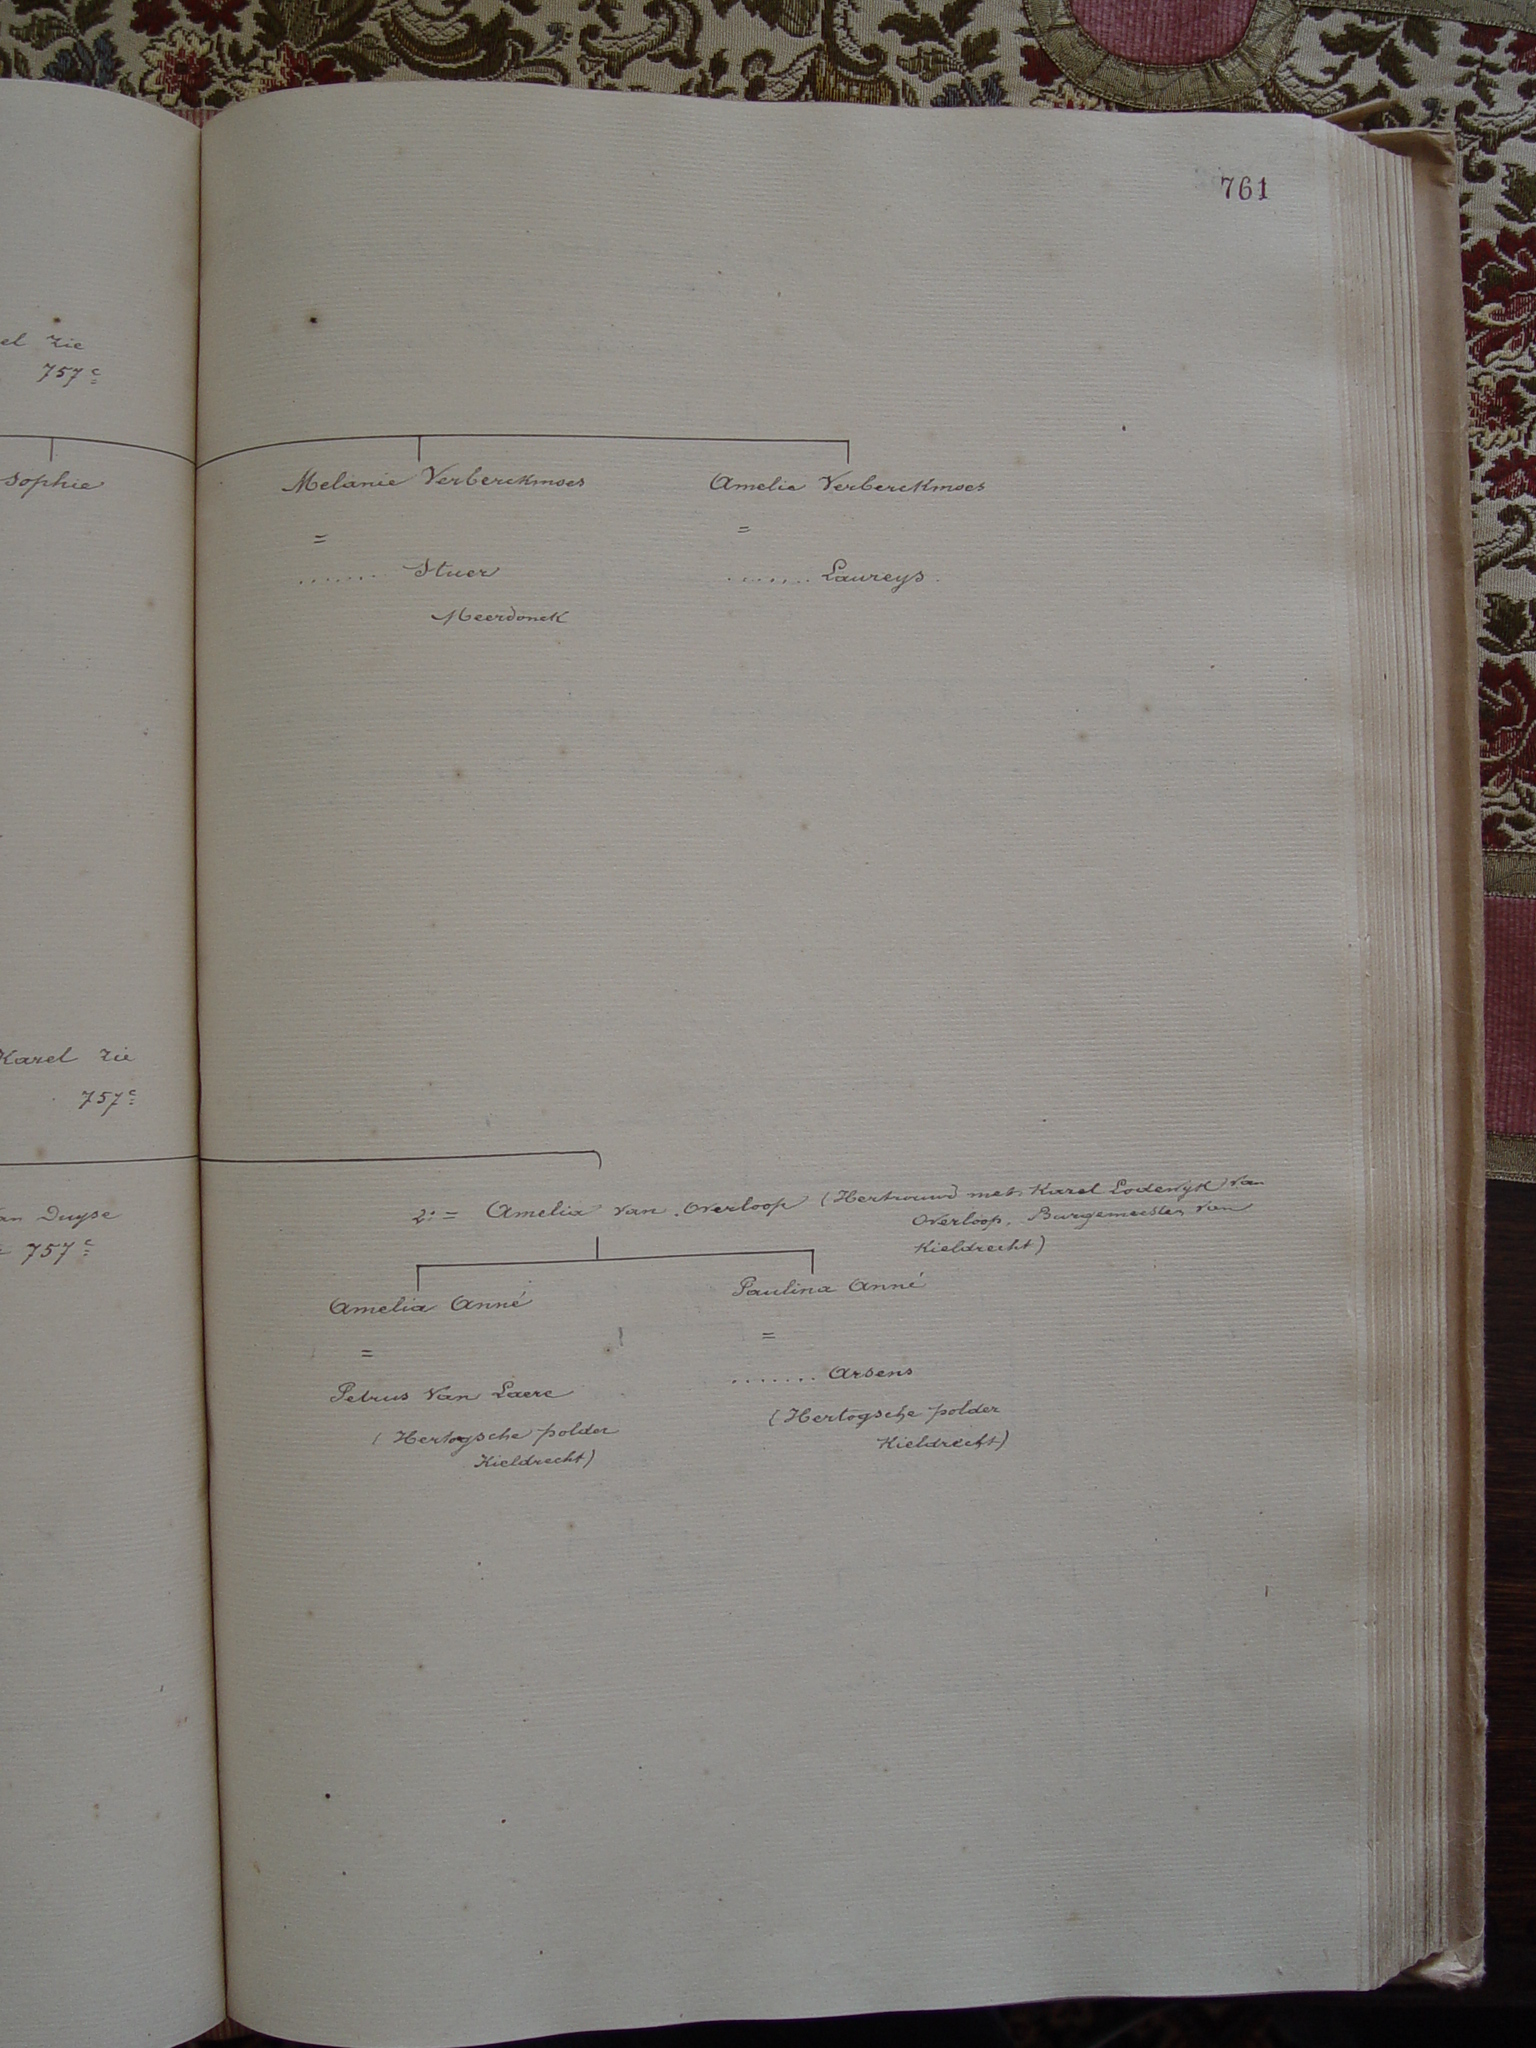 761
zie
757c
Sophie
Melanie Verberckmoes
Amelie Verberckmoes
=
=
....... Stuer
....... Laureys.
Meerdonck
Karel zie
757c
Van Duyse
= 757c
2e = Amelia Van Overloop (Hertrouwd met Karel Lodewyk Van
Overloop, Burgemeester van
Kieldrecht)
Amelia Anné
Paulina Anné
=
=
Petrus Van Laere
....... Arsens
(Hertogsche polder
Kieldrecht)
(Hertogsche polder
Kieldrecht)